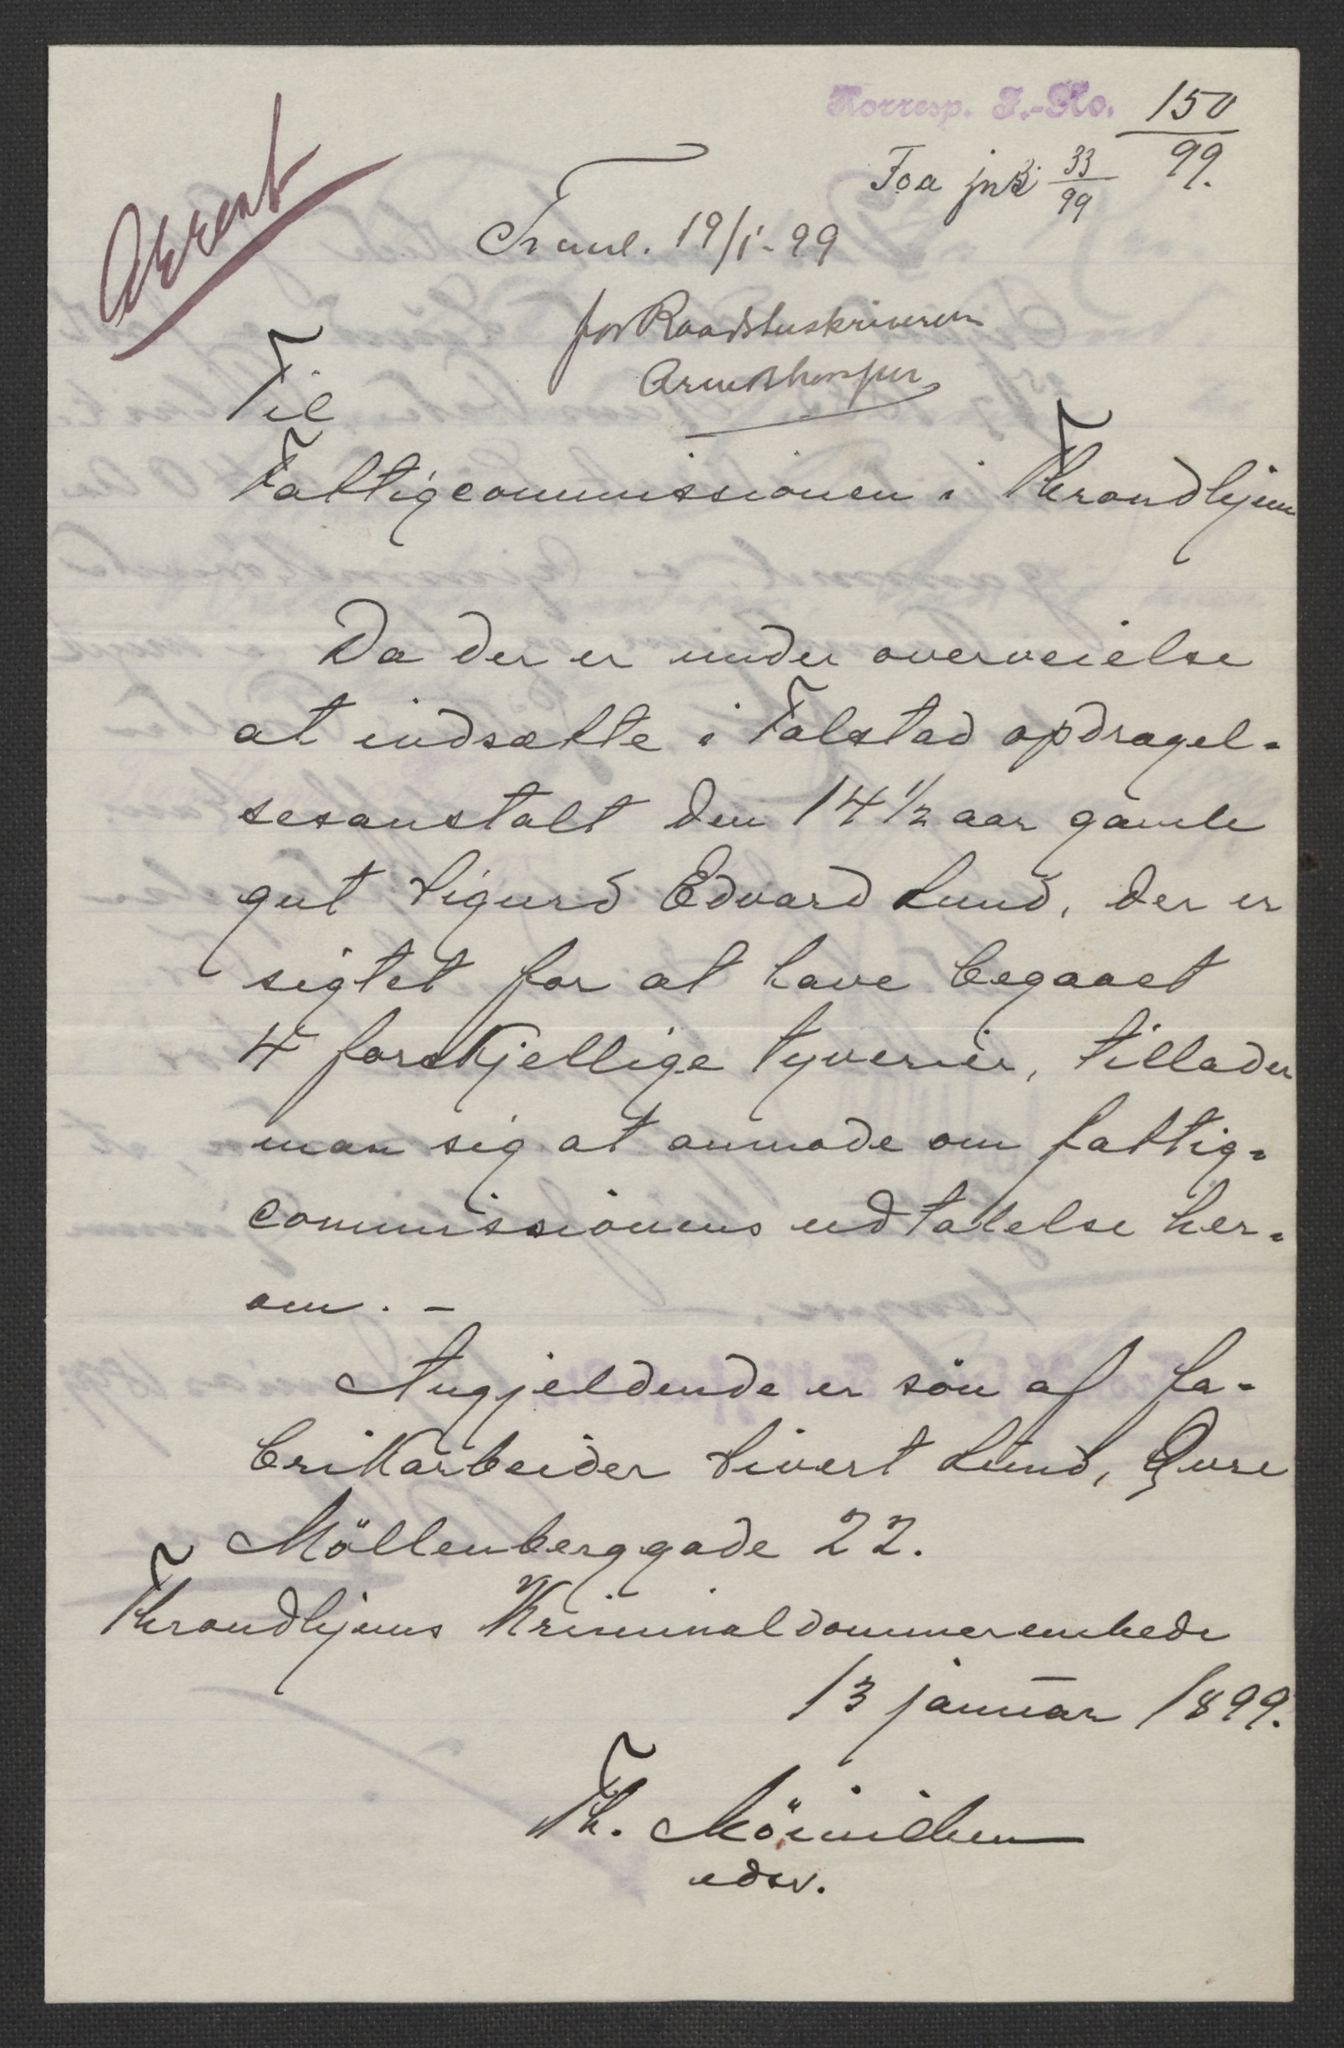 Korresp. J.-No. 150
99.
Foa jn 33
99
Freml. 19/1-99
for Raadstuskriveren
Til
Fattigcommissionen i Throndhjem
Da der er under overveielse
at indsætte i Falstad opdragel-
sesanstalt den 14 1/2 aar gamle
gut Sigurd Edvard Lund, der er
sigtet for at have begaaet
4 forskjellige tyverier, tillader
man sig at anmode om fattig-
commissionens udtalelse her-
om. -
Angjeldende er sön af fa-
brikarbeider Sivert Lund, Övre
Möllenberggade 22.
Throndhjems Kriminaldommerembede
13 januar 1899.
Th. Möinichen
edsv.